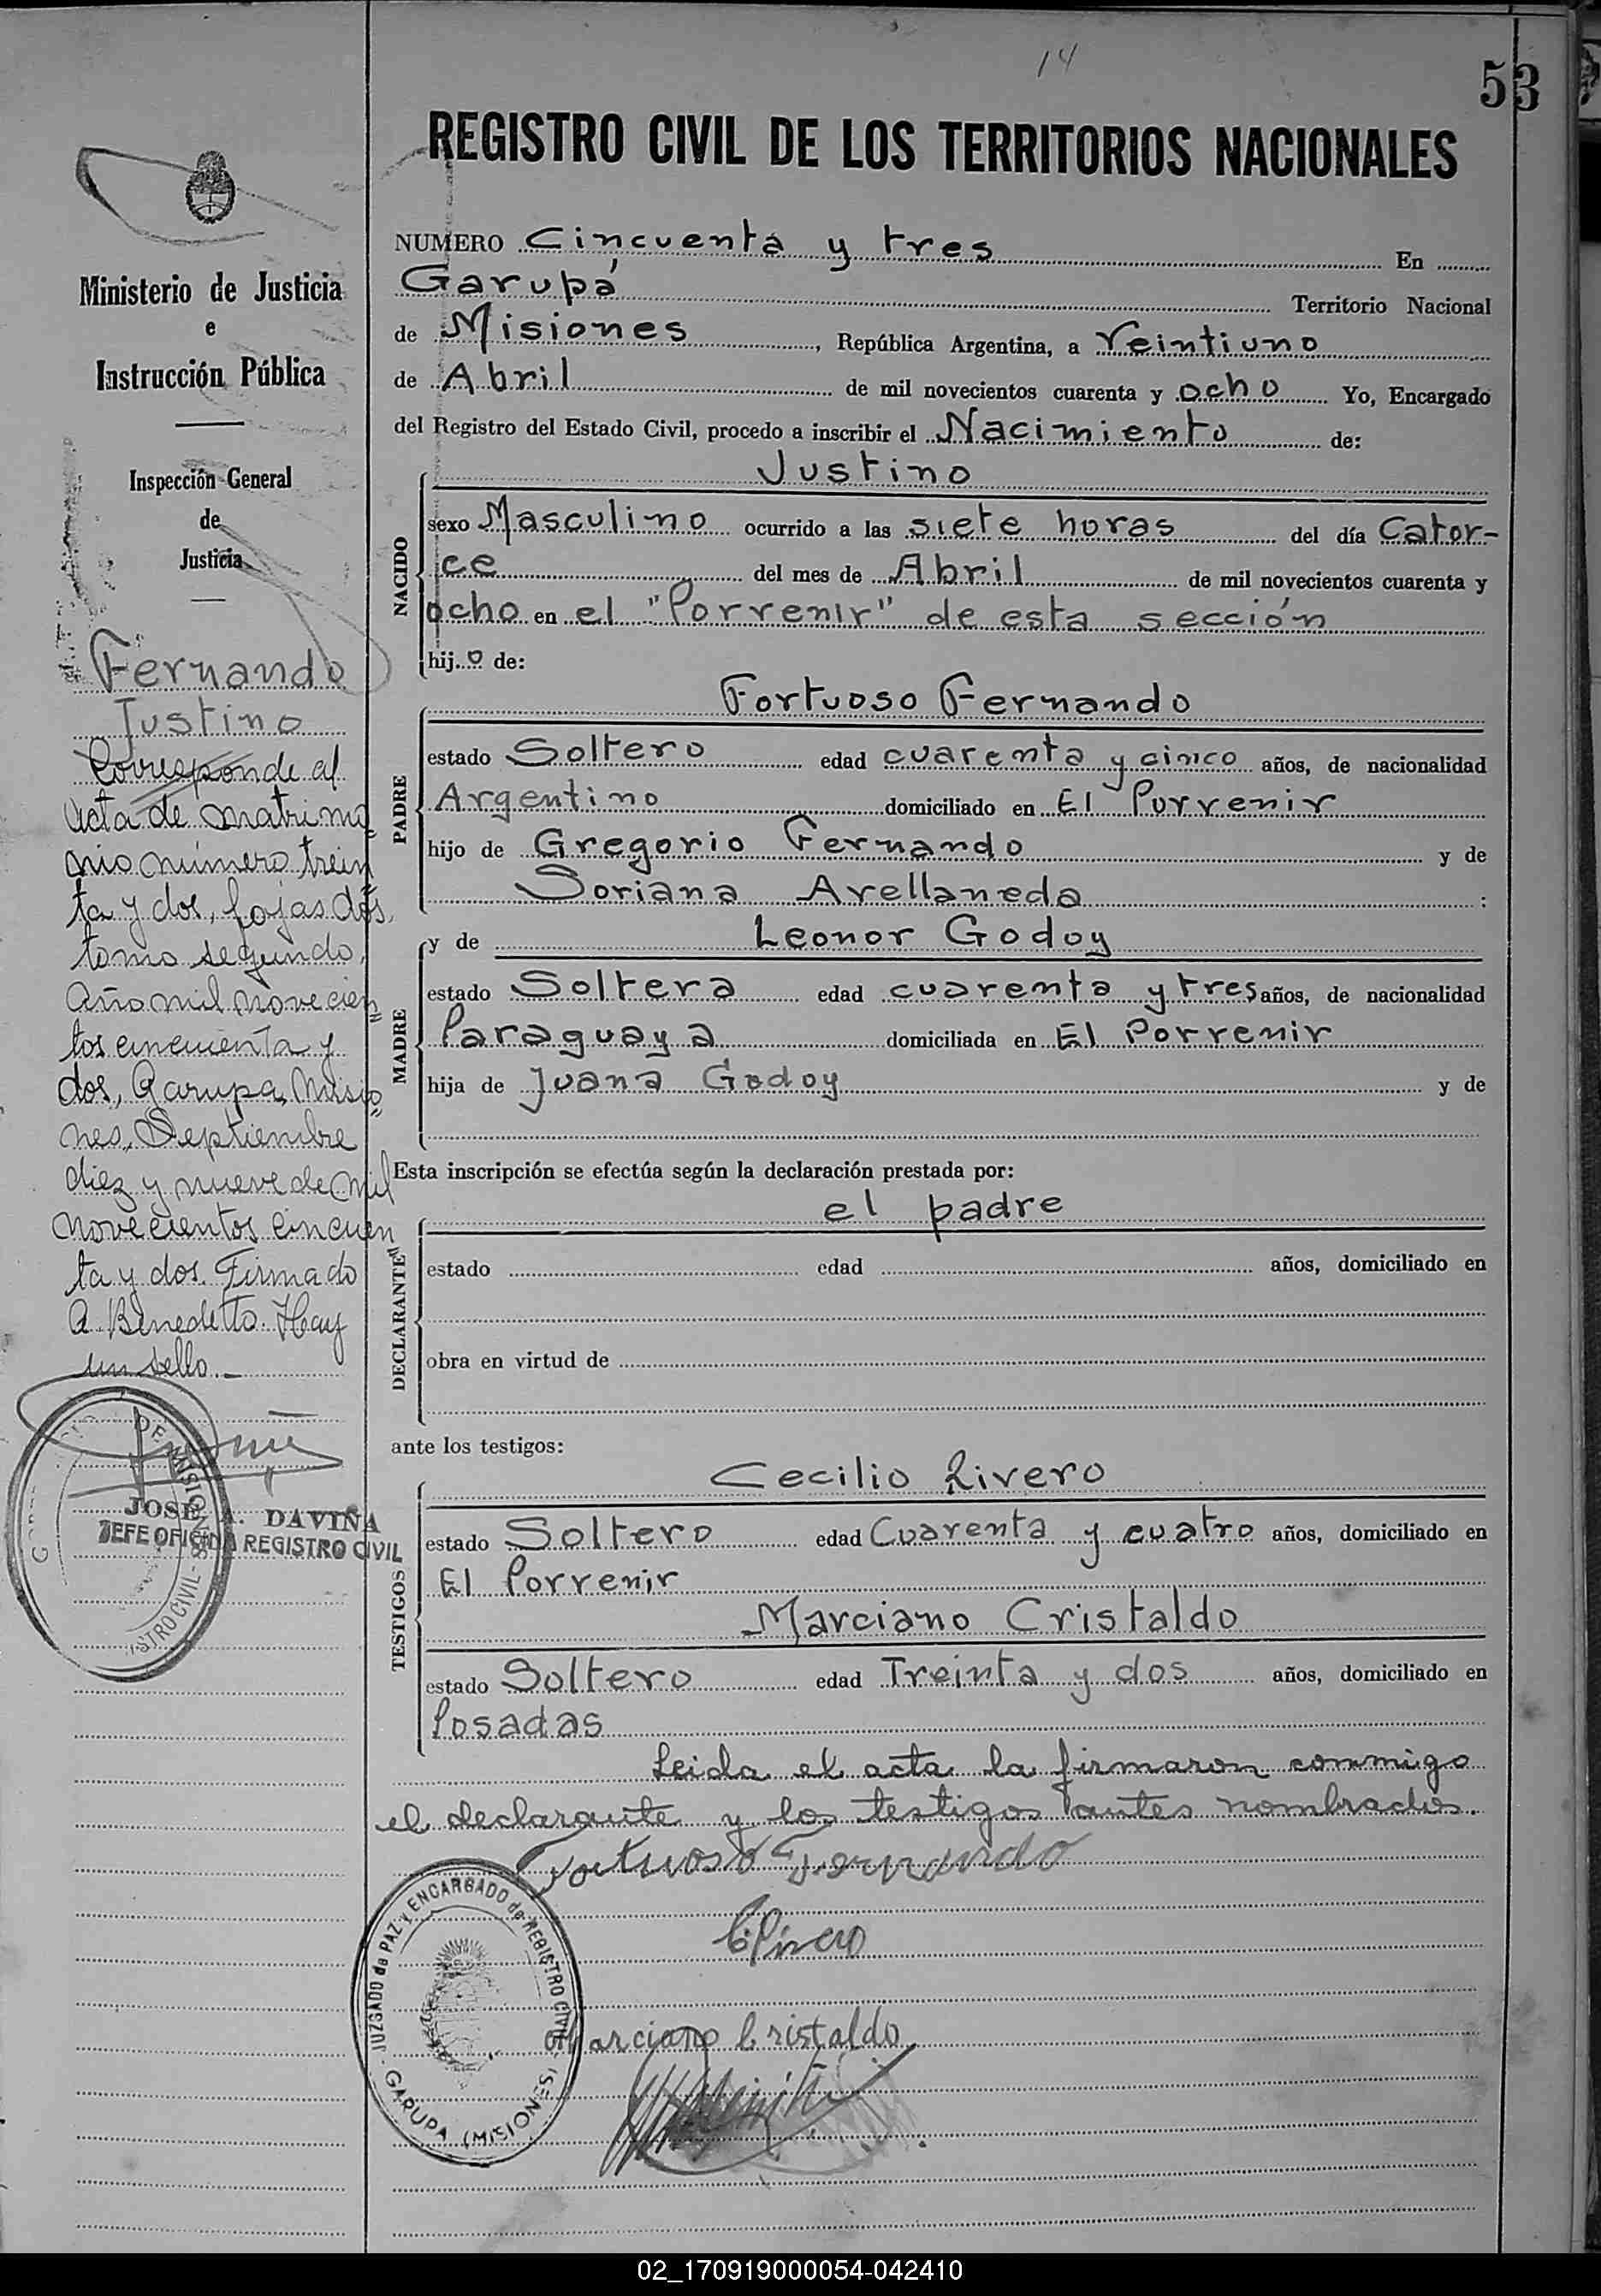 14
53
REGISTRO CIVIL DE LOS TERRITORIOS NACIONALES
Ministerio de Justicia
e
Instrucción Pública
Inspección General
de
Justicia
Fernando
Justino
Corresponde al
acta de matrimo
nio número trein
ta y dos, fojas dos,
tomo segundo,
año mil novecien
tos cincuenta y
dos, Garupa, Misio
nes, Septiembre
diez y nueve de mil
novecientos cincuen
ta y dos. Firmado
A. Benedetto. Hay
un sello._
JOSE A. DAVIÑA
JEFE OFICINA REGISTRO CIVIL
NUMERO Cincuenta y tres En
Garupá Territorio Nacional
de Misiones, República Argentina, a Veintiuno
de Abril de mil novecientos cuarenta y ocho Yo, Encargado
del Registro del Estado Civil, procedo a inscribir el Nacimiento de:
NACIDO
Justino
sexo Masculino ocurrido a las siete horas del día Cator-
ce del mes de Abril de mil novecientos cuarenta y
ocho en el "Porvenir" de esta sección
hijo de:
PADRE
Fortuoso Fernando
estado Soltero edad cuarenta y cinco años, de nacionalidad
Argentino domiciliado en El Porvenir
hijo de Gregorio Fernando y de
Soriana Avellaneda :
MADRE
y de Leonor Godoy
estado Soltera edad cuarenta y tres años, de nacionalidad
Paraguaya domiciliada en El Porvenir
hija de Juana Godoy y de
Esta inscripción se efectúa según la declaración prestada por:
DECLARANTE
el padre
estado edad años, domiciliado en
obra en virtud de
ante los testigos:
TESTIGOS
Cecilio Rivero
estado Soltero edad Cuarenta y cuatro años, domiciliado en
El Porvenir
Marciano Cristaldo
estado Soltero edad Treinta y dos años, domiciliado en
Posadas
Leida el acta la firmaron conmigo
el declarante y los testigos antes nombrados.
Fortuoso Fernando
Marciano Cristaldo
JUZGADO de PAZ y ENCARGADO de REGISTRO CIVIL
GARUPA (MISIONES)
02_170919000054-042410